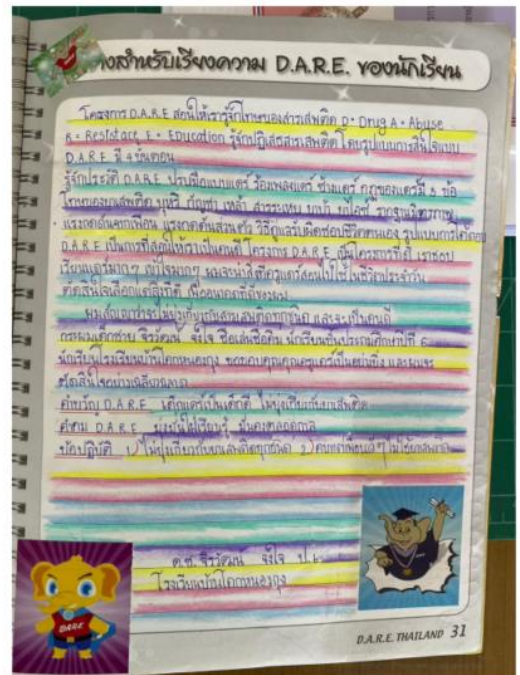 สำหรับเรียงความ D.A.R.E. ของนักเรียน
โครงการ D.A.R.E สอนให้เรารู้จักโทษของสารเสพติด D = Drug A = Abuse
R = Resistace E = Education รู้จักปฏิเสธสารเสพติดโดยรูปแบบการตัดสินใจแบบ
D.A.R.E มี 4 ขั้นตอน
รู้จักประวัติ D.A.R.E ปรบมือแบบแดร์ ร้องเพลงแดร์ ช้างแดร์ กฎของแดร์มี 5 ข้อ
โทษของยาเสพติด บุหรี่ กัญชา เหล้า สารระเหย ยาบ้า
แรงกดดันจากเพื่อน แรงกดดันส่วนตัว วิธีดูแลรับผิดชอบชีวิตตนเอง รูปแบบการโต้ตอบ
D.A.R.E เป็นการที่สอนให้เราเป็นคนดี โครงการ D.A.R.E เป็นโครงการที่ดี เราชอบ
เรียนแดร์มากๆ ผมจะนำสิ่งที่ครูแดร์สอนไปใช้ในชีวิตประจำวัน
ตัดสินใจเลือกแต่สิ่งที่ดี เพื่ออนาคตที่ดีของผม
ผมสัญญาว่าจะไม่ยุ่งเกี่ยวกับสารเสพติดทุกชนิด และจะเป็นคนดี
เด็กชาย จิรวัฒน์ จังใจ ชื่อเล่น นักเรียนชั้นประถมศึกษาปีที่ 6
นักเรียนโรงเรียนบ้านโคกหนองกุง ขอขอบคุณคุณครูแดร์เป็นอย่างยิ่ง และผมจะ
ตัดสินใจอย่างเฉลียวฉลาด
คำขวัญ D.A.R.E เด็กแดร์เป็นเด็กดี ไม่ยุ่งเกี่ยวกับยาเสพติด
คำคม D.A.R.E มุ่งมั่นใฝ่เรียนรู้
ข้อปฏิบัติ 1) ไม่ยุ่งเกี่ยวกับยาเสพติดทุกชนิด 2) คบแต่เพื่อนดีๆ ไม่ใช้ยาเสพติด
ด.ช. จิรวัฒน์ จังใจ ป.6
โรงเรียนบ้านโคกหนองกุง
DARE
D.A.R.E. THAILAND 31